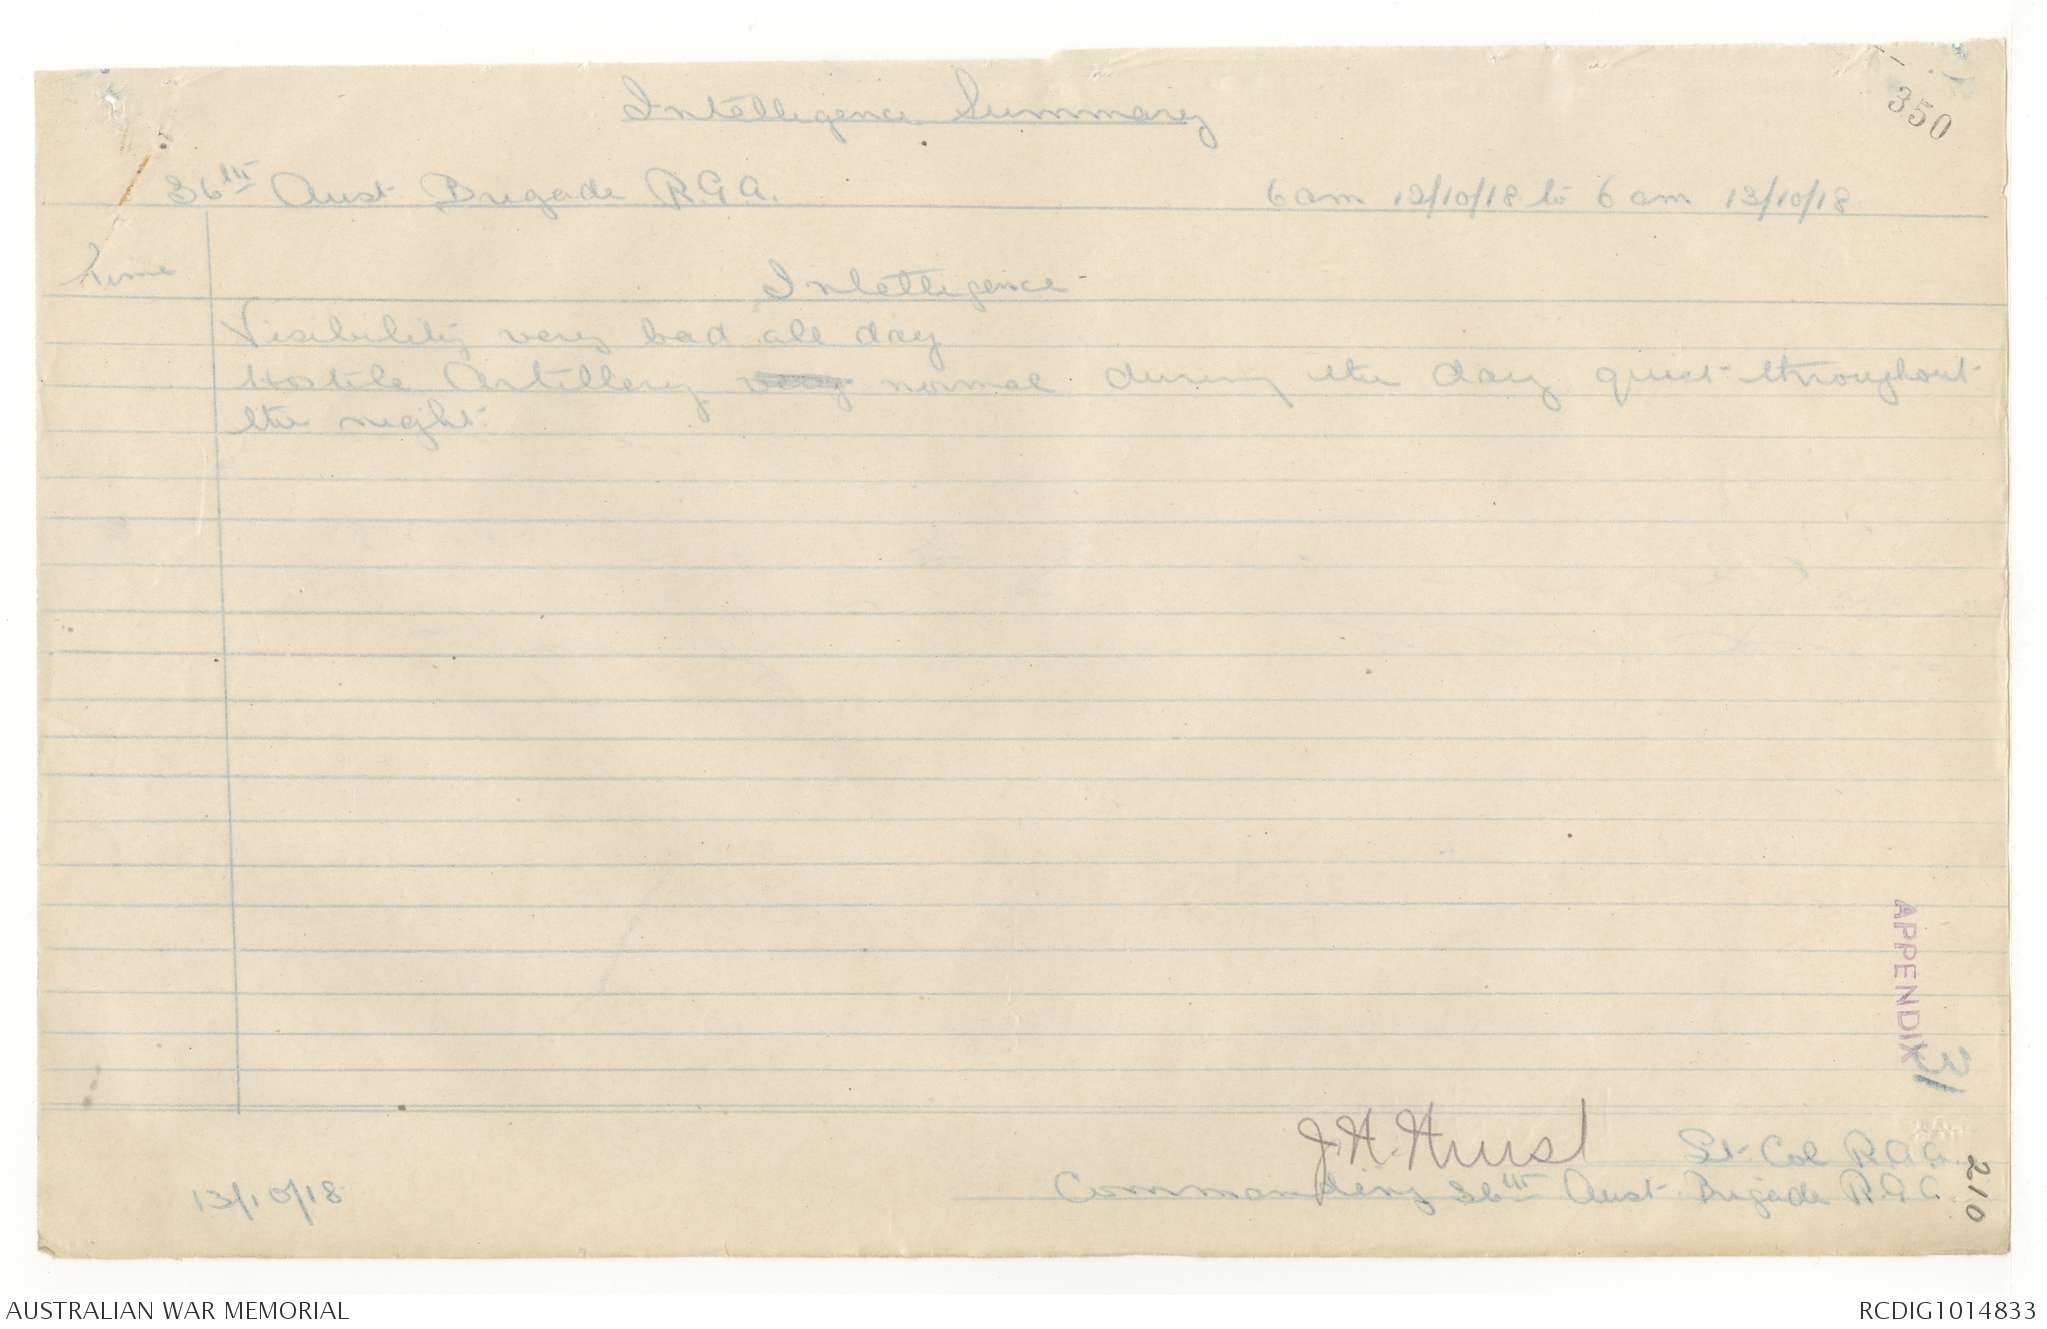 350
Intelligence Summary
36th Aust Brigade R.G.A. 6 am 12/10/18 to 6 am 13/10/18
Time
Intelligence
Visibility very bad all day
Hostile Artillery very normal during the day quiet throughout
the night
APPENDIX
J.H. Hurst Lt Col R.A.A.
13/10/18 Commanding 36th Aust Brigade R.G.A.
210
AUSTRALIAN WAR MEMORIAL RCDIG1014833